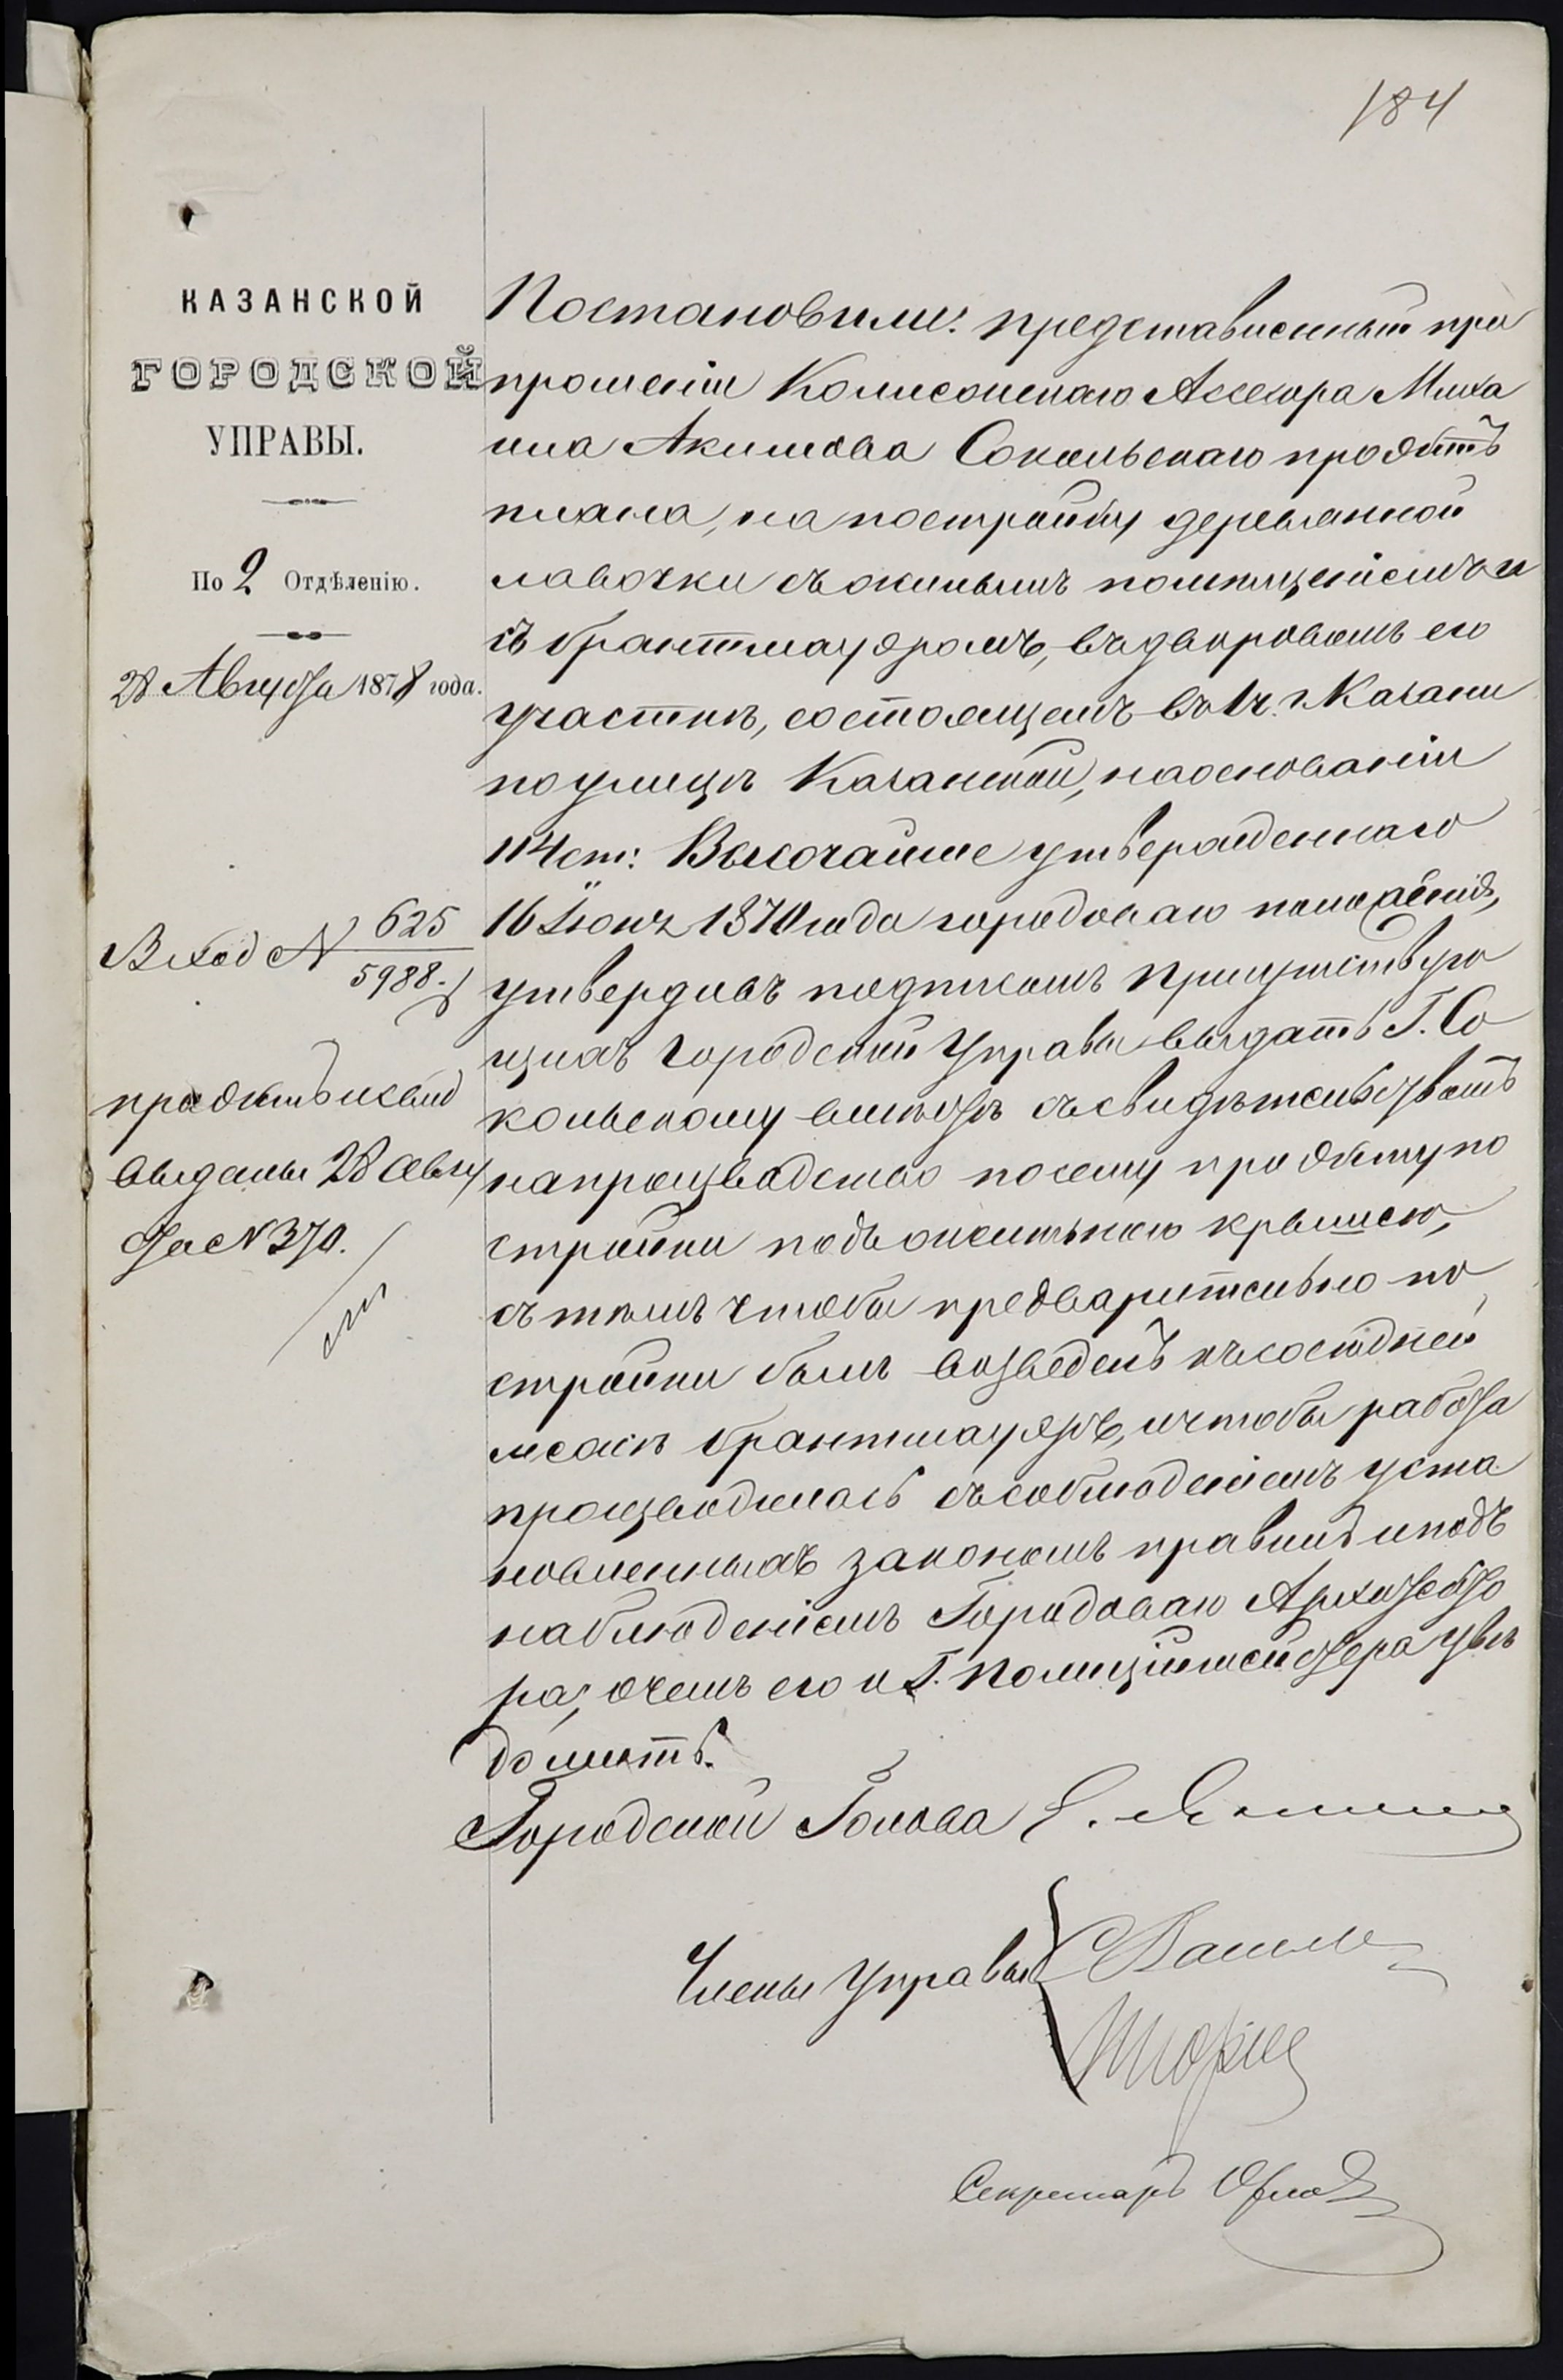 184
КАЗАНСКОЙ
ГОРОДСКОЙ
УПРАВЫ.
По 2 Отдѣленію.
28 Августа 1878 года.
Вход № 625
5988.
проэктъ и свид
выданы 28 Авгу
ста № 370.
Постановили: представленный при
прошеніи Колежскаго Ассесора Миха
ила Акимова Сокольскаго проэктъ
плана, на постройку деревянной
лавочки съ жилымъ помѣщеніемъ и
съ брантмауэромъ, въ дворовомъ его
участкѣ, состоящемъ въ 1 ч. г. Казани
по улицѣ Казанской, на основаніи
114 ст: Высочайше утвержденнаго
16 Іюня 1870 года городоваго положенія,
утвердивъ подписомъ присутствую
щихъ Городской Управы выдать Г. Со
кольскому вмѣстѣ съ свидѣтельствомъ
на производство по сему проэкту по
стройки подъ желѣзною крышею,
съ тѣмъ чтобы предварительно по
стройки былъ возведенъ къ сосѣдней
межѣ брантмауэръ, и чтобы работа
производилась съ соблюденіемъ уста
новленныхъ закономъ правилъ и подъ
наблюденіемъ Городоваго Архитекто
ра, о чемъ его и Г. Полиціймейстера увѣ
домить.
Городской Голова Э. Янишев
Члены Управы
Секретарь Орлов